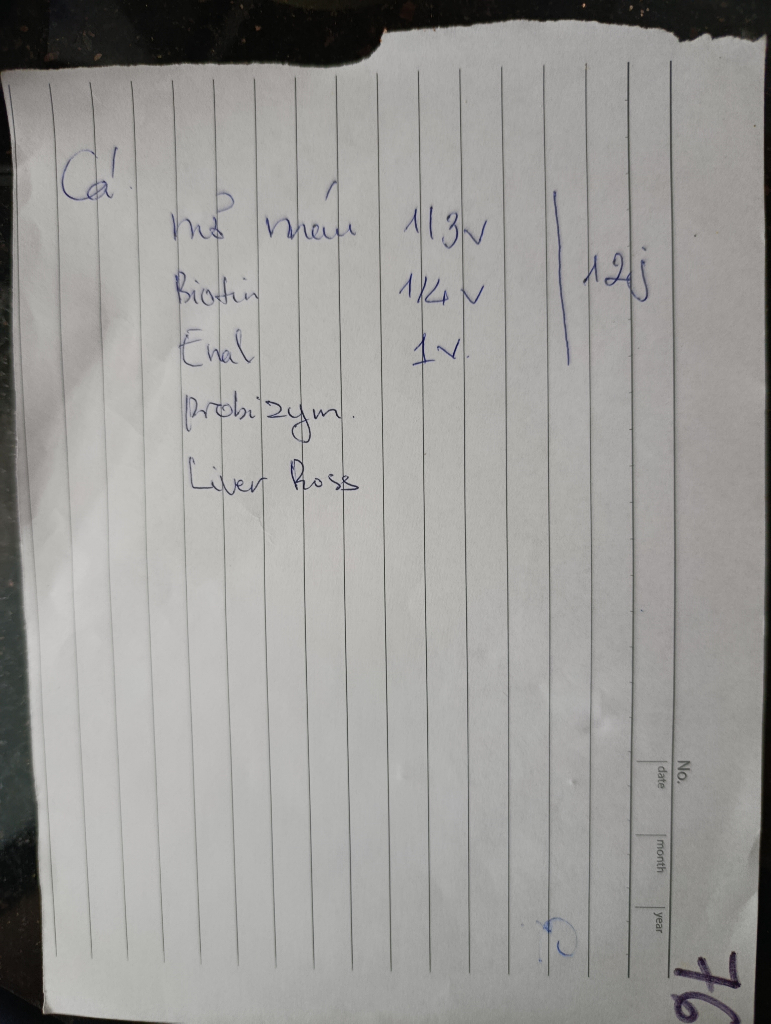 Cá
mỡ máu 1/3v
Biotin 1/4 v
Enal 1v
12j
probizym.
Liver Ross
No.
date month year
76